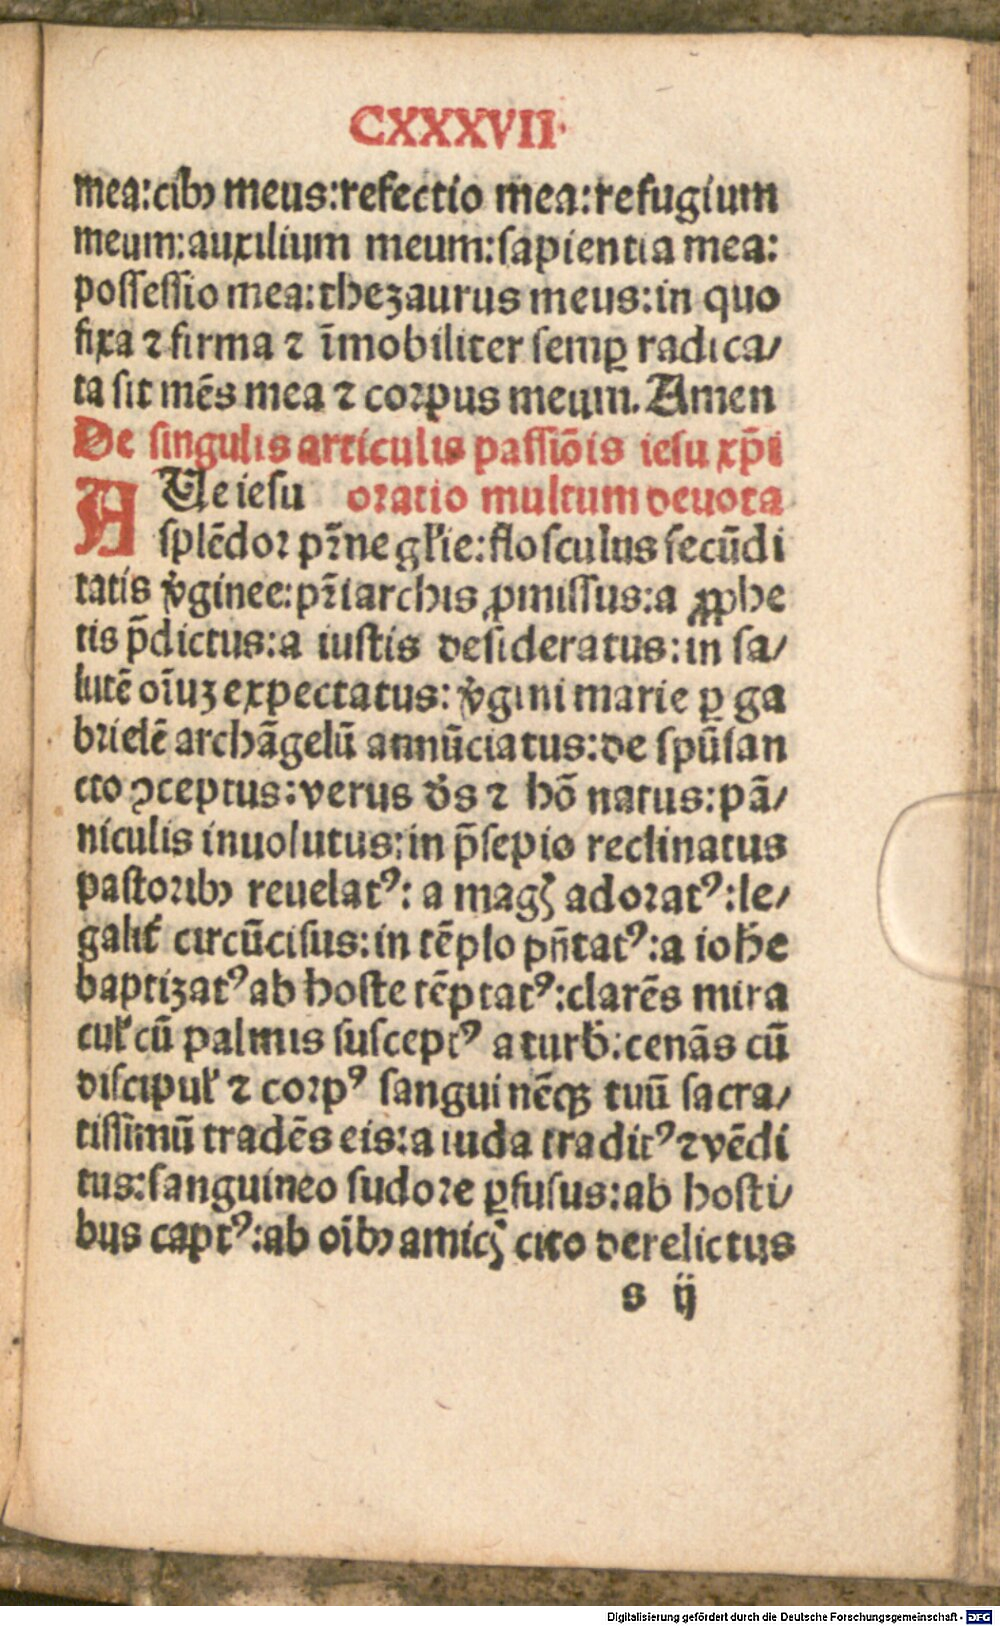 CXXXVII
mea:cibꝫ meus:refectio mea:refugium
meum:auxilium meum:sapientia mea:
possessio mea:thezaurus meus:in quo
fixa ⁊ firma ⁊ īmobiliter semꝑ radica/
ta sit mēs mea ⁊ corpus meum. Amen
De singulis articulis passiōis iesu xp̄i
AUe iesu oratio multum deuota
splēdor pr̄ne gl'ie:flosculus secūdi
tatis v̾ginee:pr̄iarchis ꝓmissus:a ꝓphe
tis p̄dictus:a iustis desideratus:in sa/
lutē oīuꝫ expectatus: v̾gini marie ꝑ ga
brielē archāgelū annūciatus:de spūsan
cto ꝯceptus:verus d̾s ⁊ hō natus:pā/
niculis inuolutus:in p̄sepio reclinatus
pastoribꝫ reuelatꝰ: a magꝭ adoratꝰ:le/
galit̾ circūcisus:in tēplo pn̄tatꝰ:a ioh̄e
baptizatꝰ ab hoste tēptatꝰ:clarēs mira
cul' cū palmis susceptꝰ a turb̾:cenās cū
discipul' ⁊ corpꝰ sanguinēqꝫ tuū sacra/
tissimū tradēs eis:a iuda traditꝰ ⁊ vēdi
tus:sanguineo sudore ꝑfusus:ab hosti/
bus captꝰ:ab oībꝫ amicꝭ cito derelictus
s ij
Digitalisierung gefördert durch die Deutsche Forschungsgemeinschaft - DFG